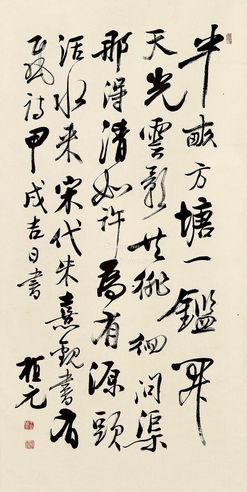 半畝方塘一鑑開
天光雲影共徘徊問渠
那得清如許爲有源頭
活水来宋代朱熹觀書有
感詩甲戌吉日書
元